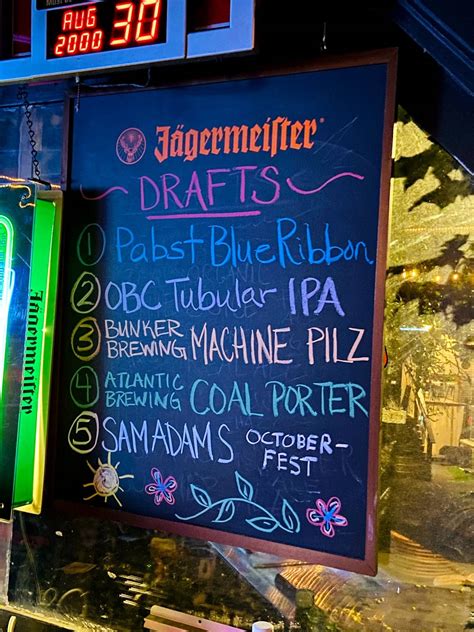 AUG
2000
30
Jägermeister
DRAFTS
1 Pabst Blue Ribbon
2 OBC Tubular IPA
3 BUNKER BREWING MACHINE PILZ
4 ATLANTIC BREWING COAL PORTER
5 SAM ADAMS OCTOBER-
FEST
Jägermeister